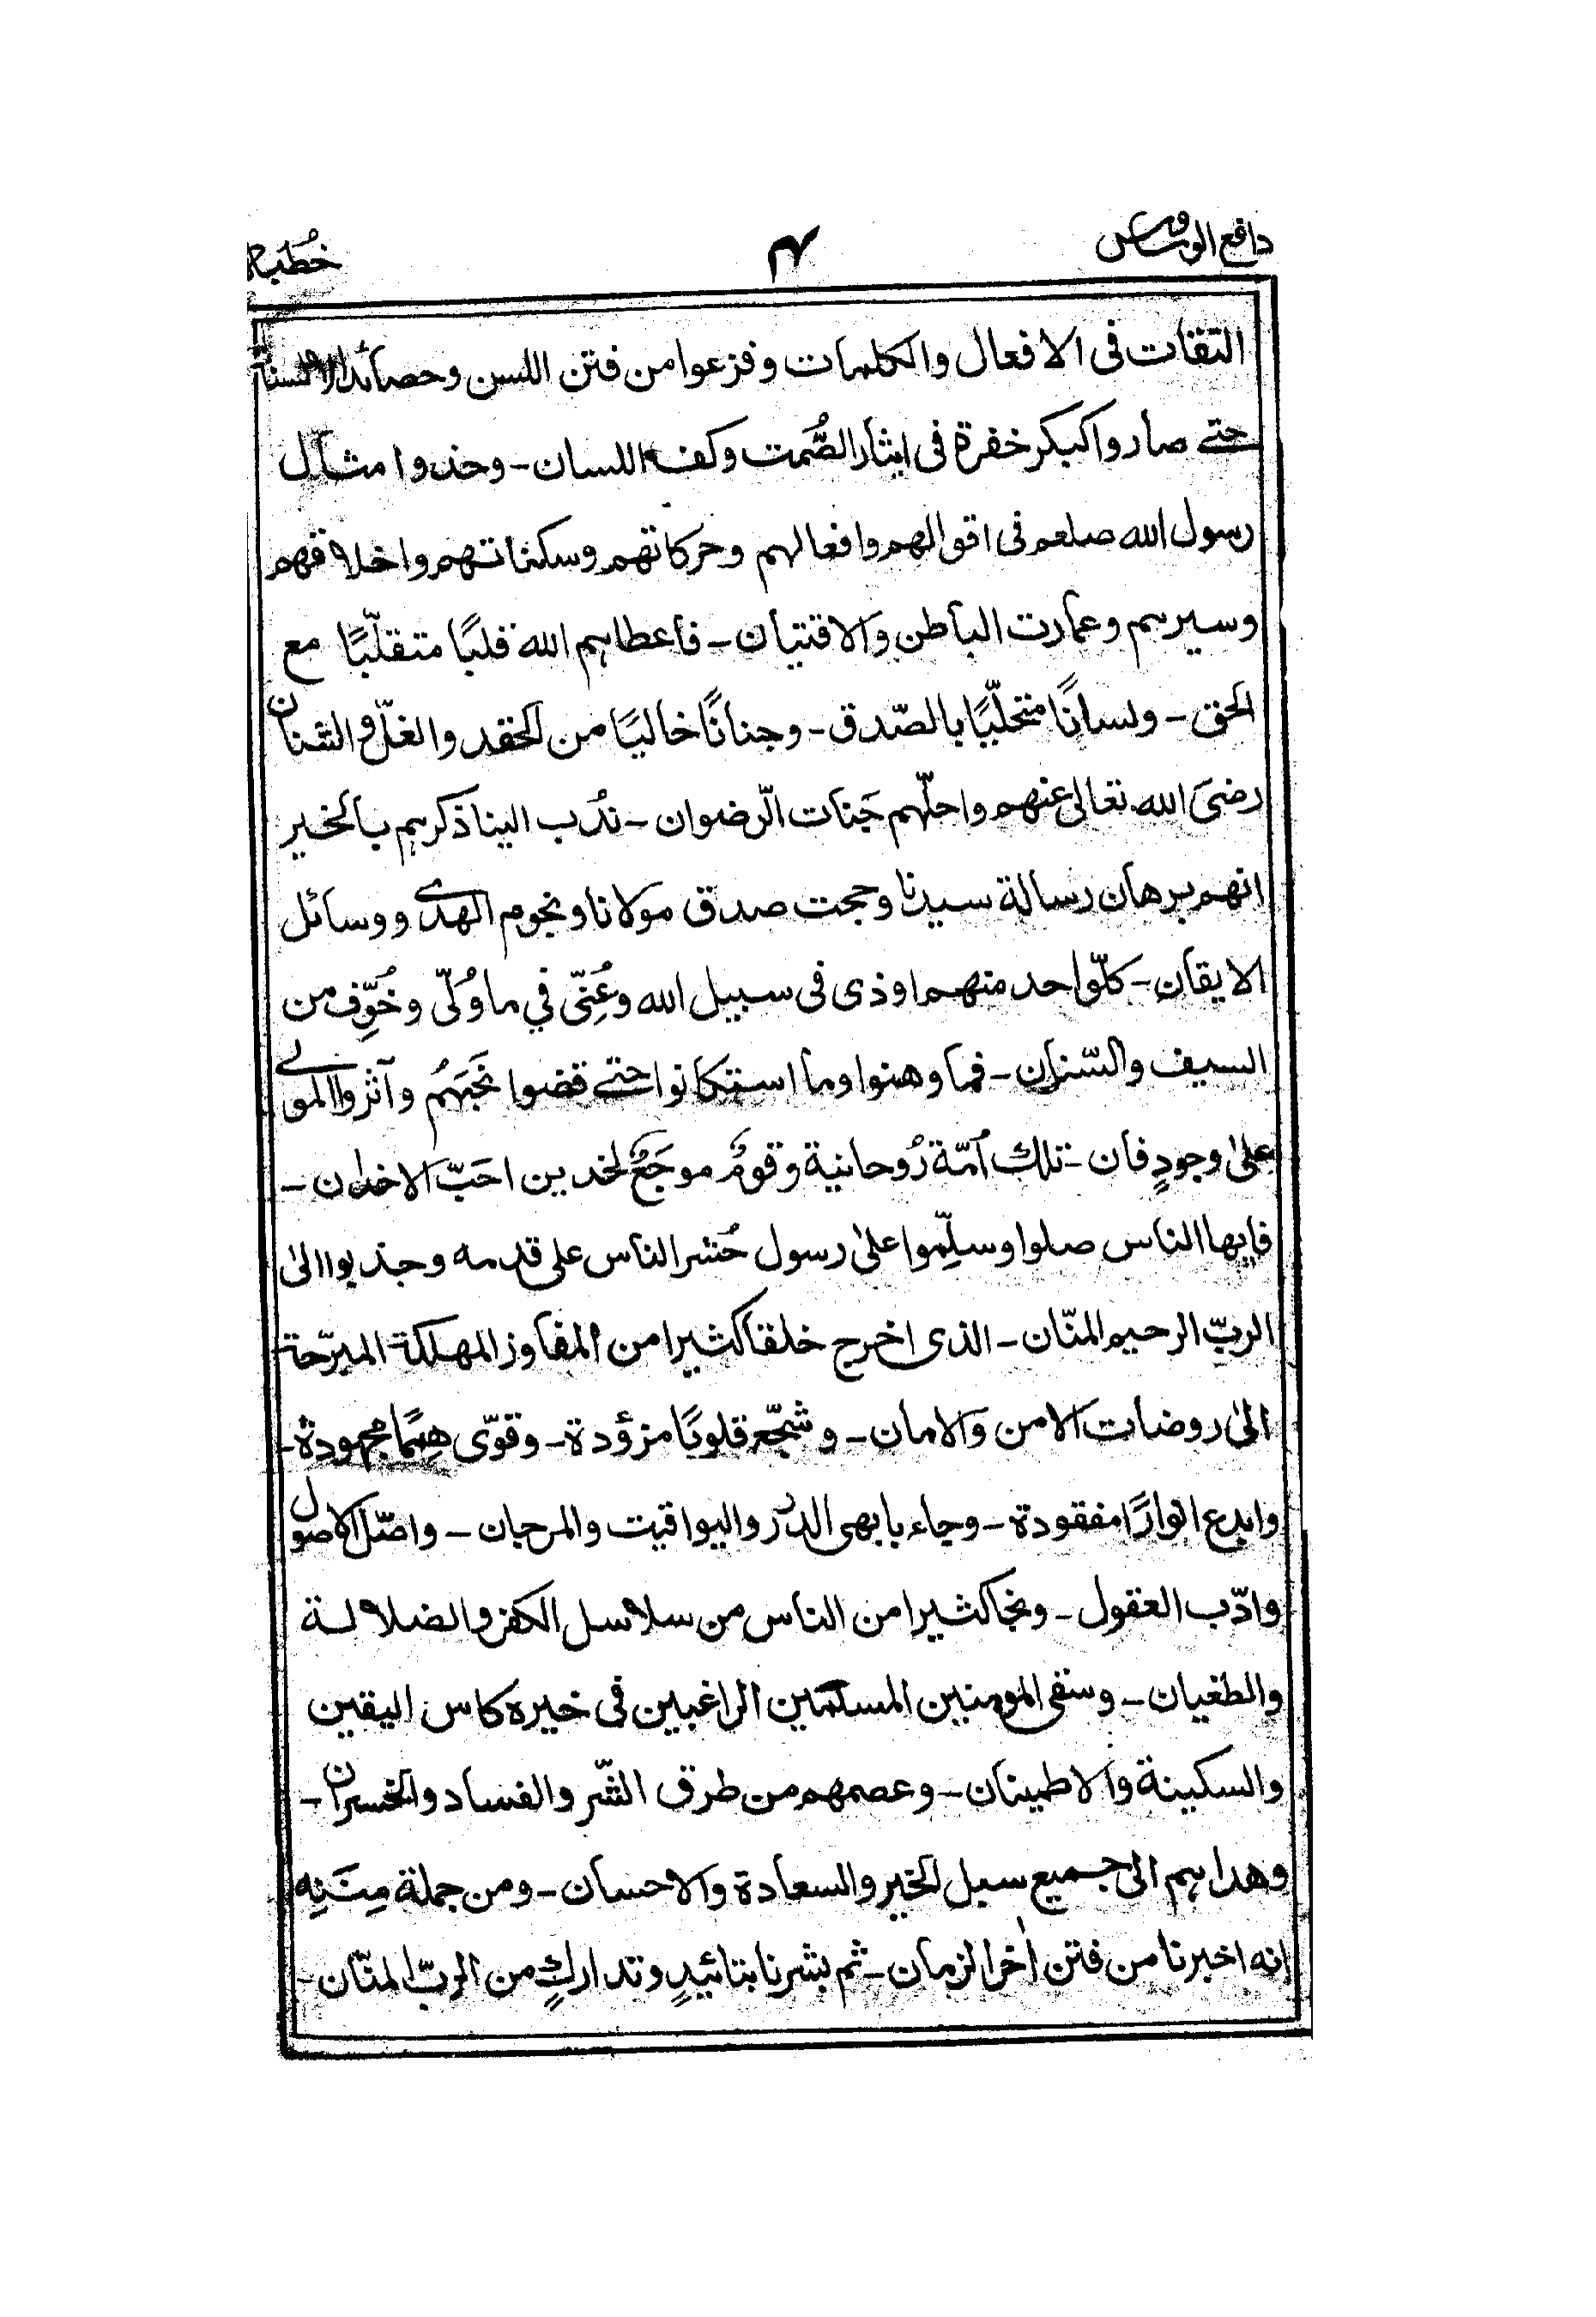 دافع الوساوس ۴ خُطبہ
التقات فی الافعال والکلمات وفزعوا من فتن اللسن وحصائد الالسنة
حتے صاروا کبکر خفرة فی ایثار الصُّمت وکف اللسان ـ وحذوا مثال
رسول الله صلعم فی اقوالهم وافعالہم وحرکاتهم وسکناتهم واخلاقهم
وسیرہم وعمارت الباطن والاقتیان ـ فاعطاہم الله قلبًا متقلّبًا مع
الحق ـ ولسانًا متحلّیًا بالصّدق ـ وجنانًا خالیًا من الحقد والغلّ والشنان
رضی الله تعالیٰ عنهم واحلّهم جَنات الرّضوان ـ نُدب الینا ذکرہم بالخیر
انهم برهان رسالة سیدنا وحجت صدق مولانا ونجوم الهدے ووسائل
الایقان ـ کلّ واحد منهم اوذی فی سبیل الله وعُنِّی في ما وُلّی وخُوِّف من
السیف والسّنان ـ فما وهنوا وما استکانوا حتے قضوا نحبَهُم وآثروا المولے
علیٰ وجودٍ فان ـ تلك اُمّة رُوحانیة وقومٌ موجَعٌ لخدین احَبّ الاخدان ـ
فایها الناس صلوا وسلِّموا علیٰ رسول حُشر الناس علی قدمه وجذبوا الیٰ
الربّ الرحیم المنّان ـ الذی اخرج خلقا کثیرا من المفاوز المهلکة المبرّحة
الیٰ روضات الامن والامان ـ وشجّع قلوبًا مزؤدة ـ وقوّی هِممًا مجهودة ـ
وابدع انوارًا مفقودة ـ وجاء بابهی الدرر والیواقیت والمرجان ـ واصّل الاصول
وادّب العقول ـ ونجا کثیرا من الناس من سلاسل الکفر والضلالة
والطغیان ـ وسقی المومنین المسلمین الراغبین فی خیرہ کاس الیقین
والسکینة والاطمینان ـ وعصمهم من طرق الشّر والفساد والخسران ـ
وهداہم الی جمیع سبل الخیر والسعادة والاحسان ـ ومن جملة مِنَنِه
انه اخبرنا من فتن اٰخر الزمان ـ ثم بشرنا بتائیدٍ وتدارکٍ من الربّ المنّان ـ